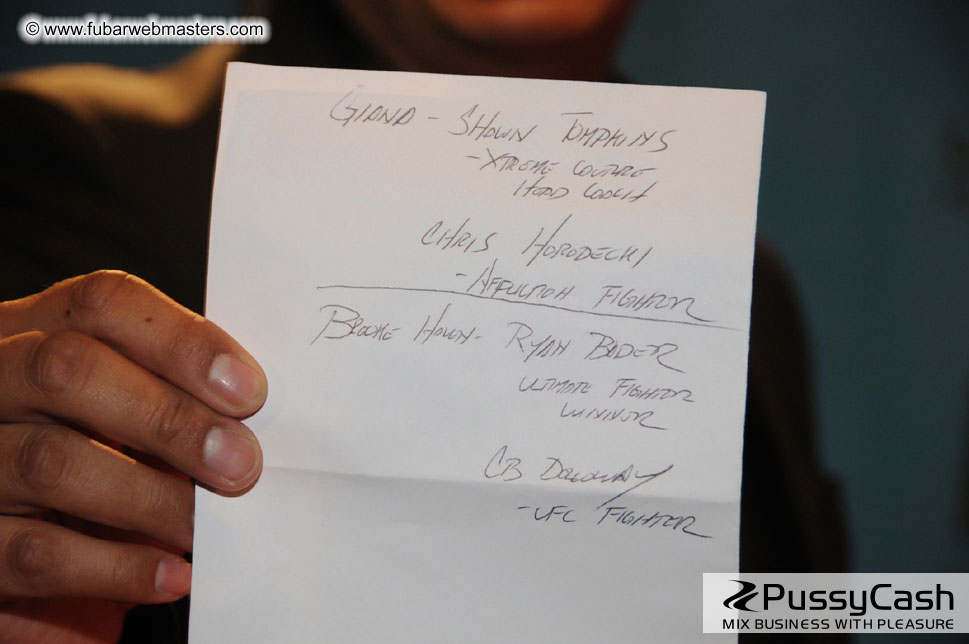 © www.fubarwebmasters.com
GIANA - SHAWN TOMPKINS
- XTREME COUTURE
HEAD COACH
CHRIS HORODECKI
- AFFLICTION FIGHTER
BROOKE HAVEN - RYAN BADER
ULTIMATE FIGHTER
WINNER
CB DOLOWAY
- UFC FIGHTER
PussyCash
MIX BUSINESS WITH PLEASURE